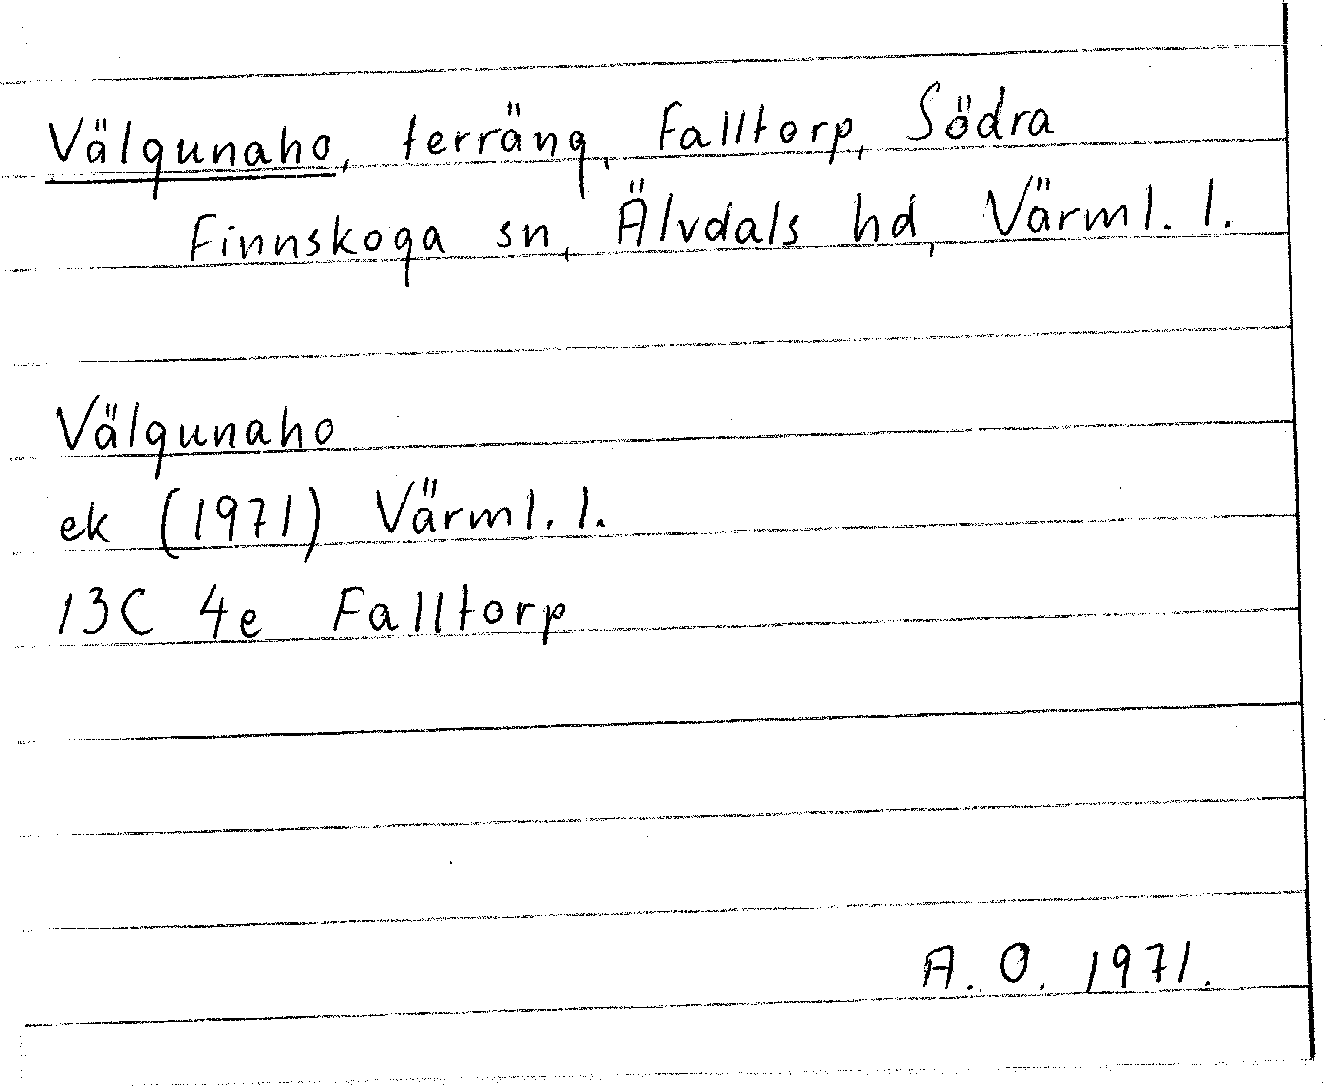 Välgunaho, terräng, Falltorp, Södra
Finnskoga sn, Älvdals hd, Värml. l.
Välgunaho
ek (1971) Värml. l.
13C 4e Falltorp
A. O. 1971.